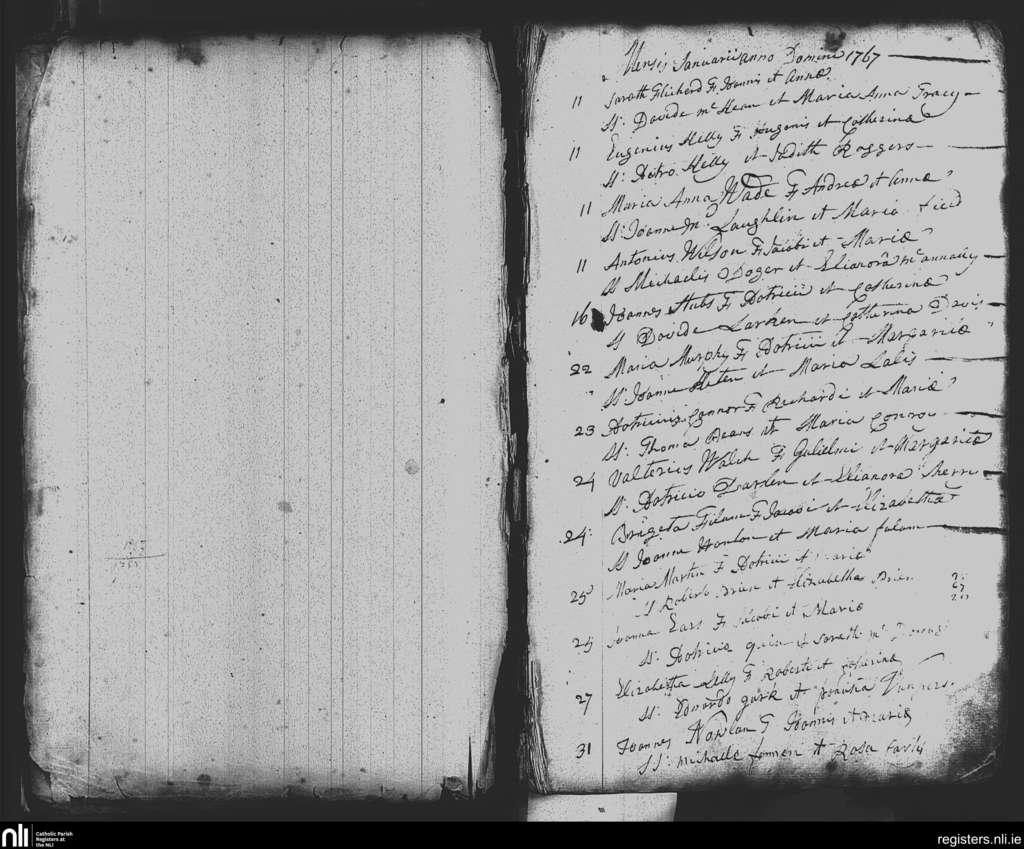 Mensis Januarii anno Domini 1767
11 Sarah F Joannis et Annæ
Ss: Davide mc Kean et Maria Anna Tracy
11 Eugenius Kelly F Eugenii et Catherinæ
Ss: Petro Kelly et Judith Roggers
11 Maria Anna Wade F Andreæ et Annæ
Ss: Joanne Mc Laughlin et Maria field
11 Antonius Wilson F Jacobi et Mariæ
Ss Michaelis Doger et Elianora mc annally
16 Joannes Stubs F Patricii et Catherinæ
Ss Davide Larken et Catherina Davis
22 Maria Murphy F Patricii et Margaritæ
Ss Joanne et Maria Lalis
23 Patricius Connor F Richardi et Mariæ
Ss: Thoma et Maria Conro
24 Valterius Walch F Gulielmi et Margaritæ
Ss: Patricio Darlen et Elianora Sherry
24: Brigeta F Jacobi et Elizabetha
Ss Joanne Hanlon et Maria
25 Maria Martin F Patricii et Mariæ
Ss Roberto Brien et Elizabetha Brien
25 Joanna Ears F Jacobi et Mariæ
Ss: Patricio Quin et Sarah mc
27 Elizabetha Kelly F Roberti et Catherinæ
Ss: Eduardo et
31 Joannes F Joannis et Mariæ
Ss: Michaele et Rosa
nli
Catholic Parish
Registers at
the NLI
registers.nli.ie